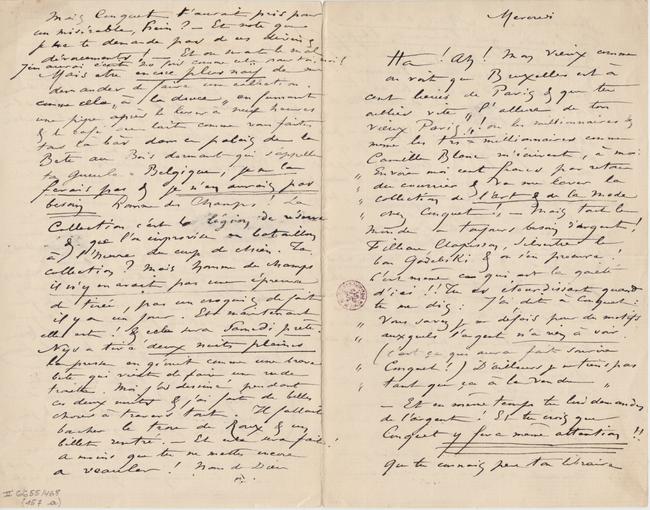 Mercredi
Ha ! Ah ! Mon vieux comme
on voit que Bruxelles est à
cent lieues de Paris & que tu
oublies vite " l'allure de ton
vieux Paris " ! où les millionnaires &
même les très-millionnaires comme
Camille Blanc m'écrivent, à moi
" Envoie moi cent francs par retour
" du courrier & va me laver la
" collection de l'art & de la Mode
" chez Conquet " – Mais tout le
monde a toujours besoin d'argent !
Filleau Clapisson, Silvestre le
bon Godebski & on s'en procure !
C'est même ça qui est la gaité
d'ici !! Tu es étourdissant quand
tu me dis : J'ai dit à Conquet :
" Vous savez je me défais pour des motifs
" auxquels l'argent n'a rien à voir.
(c'est ça qui aura fait sourire
" Conquet !) D'ailleurs je ne tiens pas
" tant que ça à la vendre "
– Et en même temps tu lui demandes
de l'argent ! Et tu crois que
Conquet y fera même attention !!
que tu connais peu ton libraire
Mais Conquet t'aurait pris pour
un misérable, hein ? – Et note que
je ne te demande pas de ces
dévouements ! – Et on
J'en aurai écrit 20 fois comme cela pour toi, moi !
Mais être encore plus
demander de faire une collection
comme cela, " à la douce " en fumant
une pipe après le lever à neuf heures
& le café au lait comme vous faites
là bas dans ce palais de la
Bête au Bois dormant qui s'appelle
ta Gueule = Belgique, je ne la
ferais pas & je n'en aurais pas
besoin Homme des Champs ! La
Collection c'est la légion de réserve
& que l'on improvise en bataillon
à l'heure du coup de chien. La
collection ? Mais homme des champs
il n'y en avait pas une épreuve
de tirée, pas un croquis de fait
il y a un jour. Et maintenant
elle est ! & cela sera Samedi prêt.
Nys a tiré deux nuits pleines
La presse en gémit comme une brave
bête qui vient de faire un rude
traite. Moi j'ai dessiné pendant
ces deux nuits & j'ai fait de belles
choses à travers tout. Il fallait
boucher le trou de Roux & un
billet rentré. – Et cela sera fait !
à moins que tu ne mettes encore
a reculer ! Nom de Dieu
II 6655/468
(157 a)